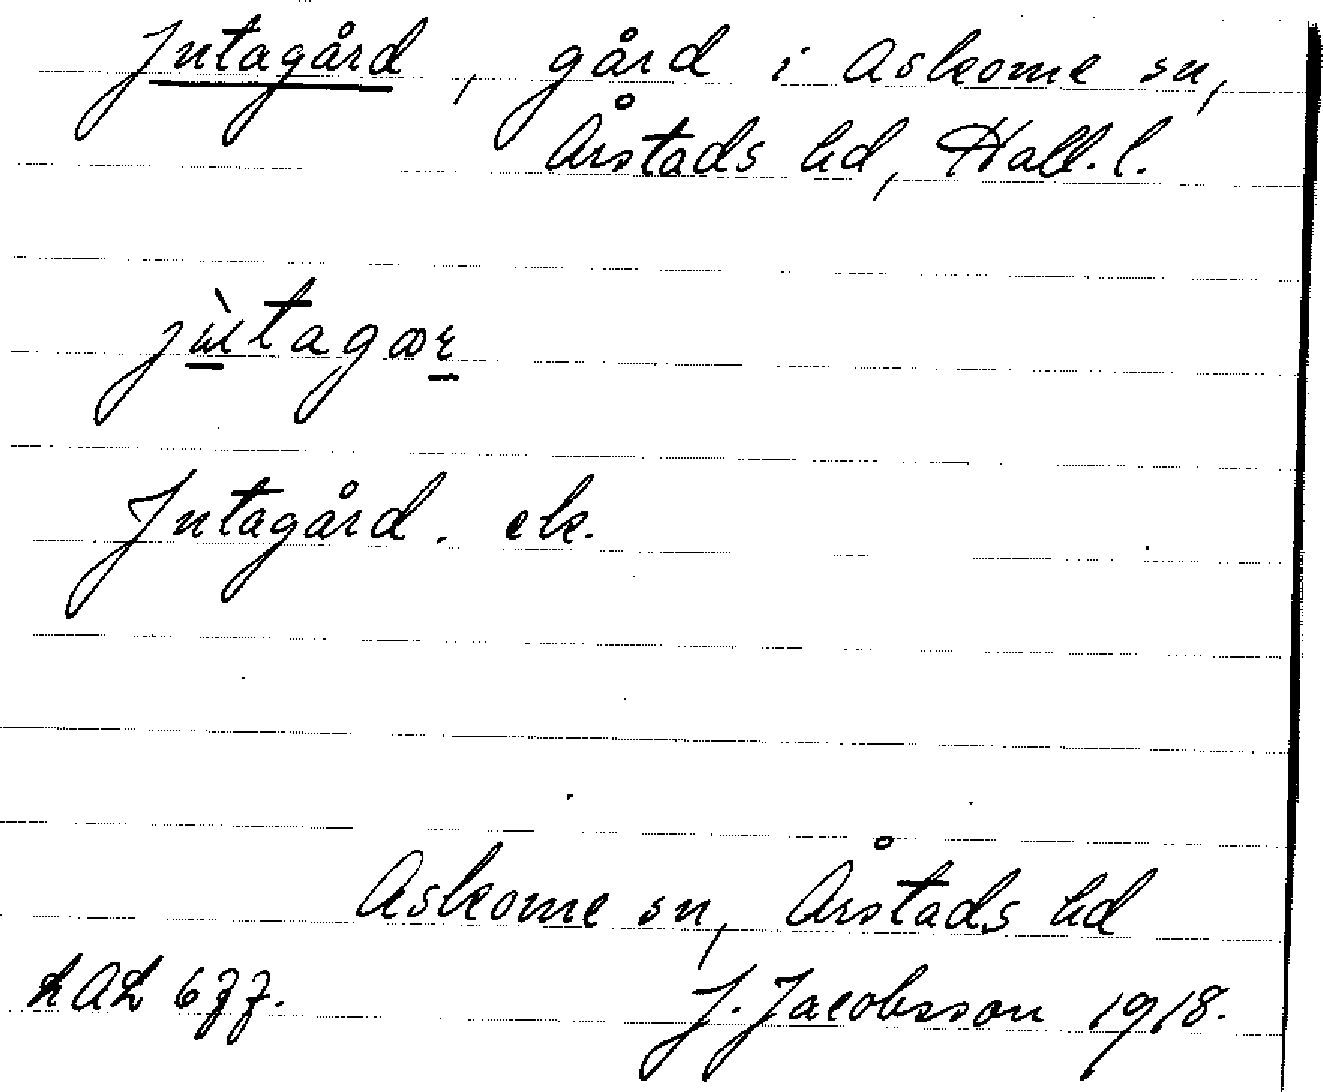 Jutagård, gård i Askome sn,
Årstads hd, Hall. l.
jùtagær
Jutagård. ek.
Askome sn, Årstads hd
LAL 677. J. Jacobsson 1918.